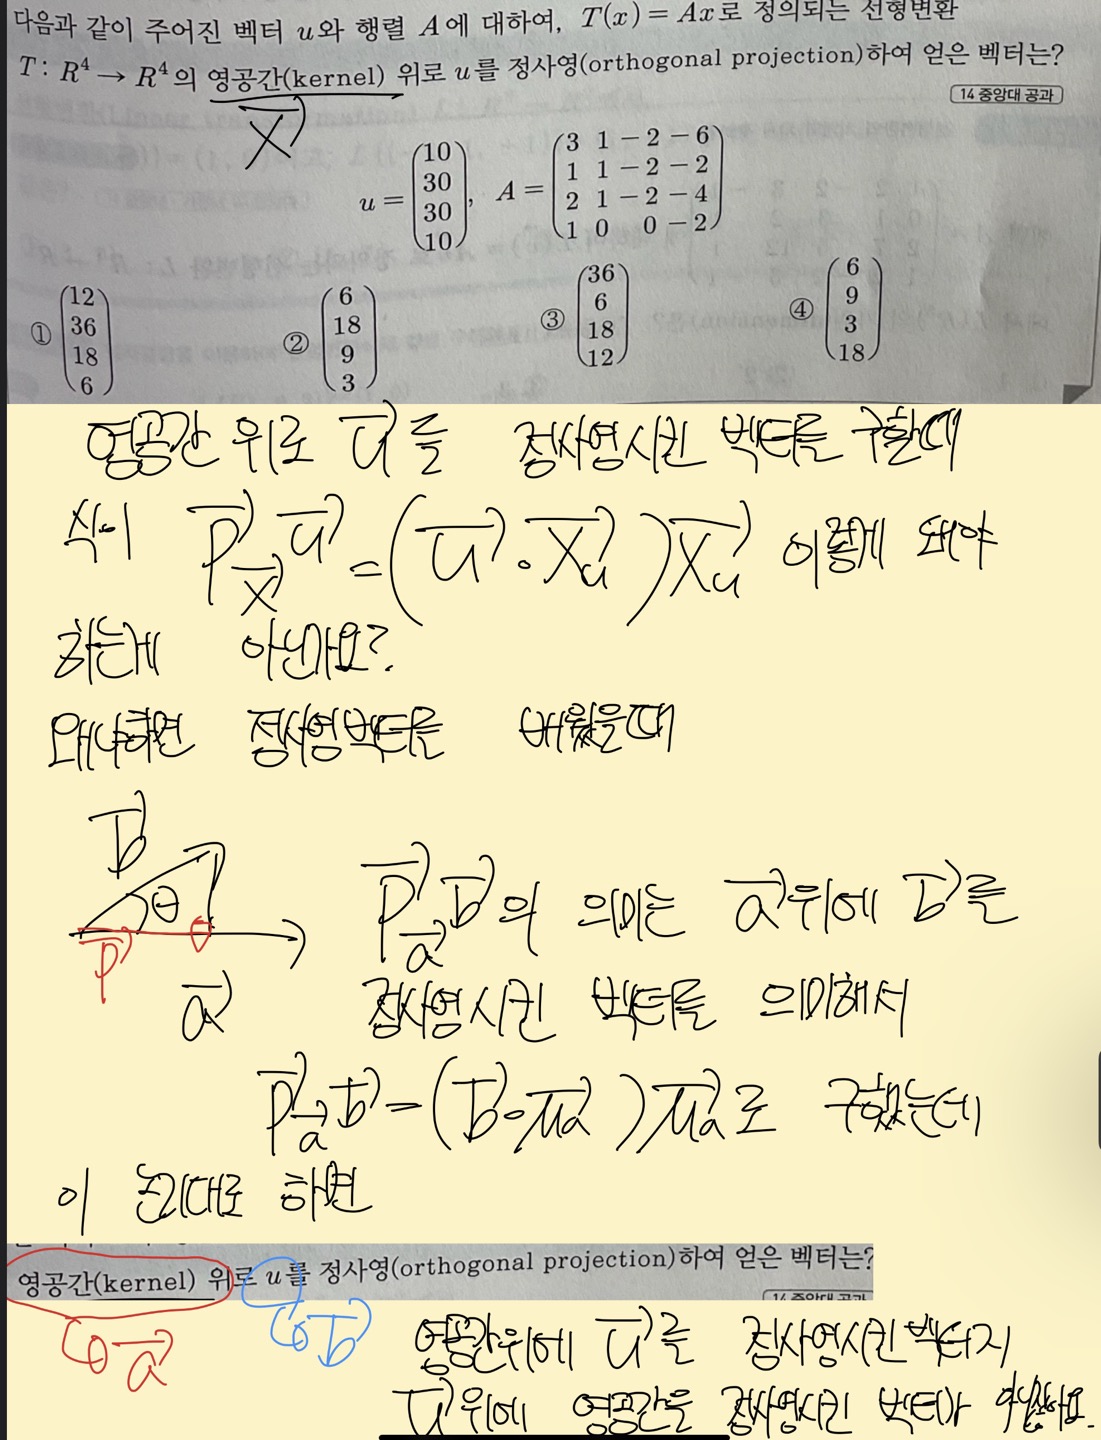 다음과 같이 주어진 벡터 u와 행렬 A에 대하여, T(x) = Ax로 정의되는 선형변환
T : R⁴ → R⁴의 영공간(kernel) 위로 u를 정사영(orthogonal projection)하여 얻은 벡터는?
14 중앙대 공과
X
u = (10 30 30 10), A = (3 1 −2 −6
1 1 −2 −2
2 1 −2 −4
1 0 0 −2)
① (12 36 18 6) ② (6 18 9 3) ③ (36 6 18 12) ④ (6 9 3 18)
영공간 위로 u를 정사영시킨 벡터를 구할때
식이 P_X u = (u • X_u) X_u 이렇게 돼야
하는게 아닌가요?
왜냐하면 정사영벡터를 배웠을때
b
θ
P
a
P_a b의 의미는 a위에 b를
정사영시킨 벡터를 의미해서
P_a b = (b • μ_a) μ_a로 구했는데
이 논리대로 하면
영공간(kernel) 위로 u를 정사영(orthogonal projection)하여 얻은 벡터는?
14 중앙대 공과
a
b
영공간위에 u를 정사영시킨벡터지
u위에 영공간을 정사영시킨 벡터가 아니잖아요.